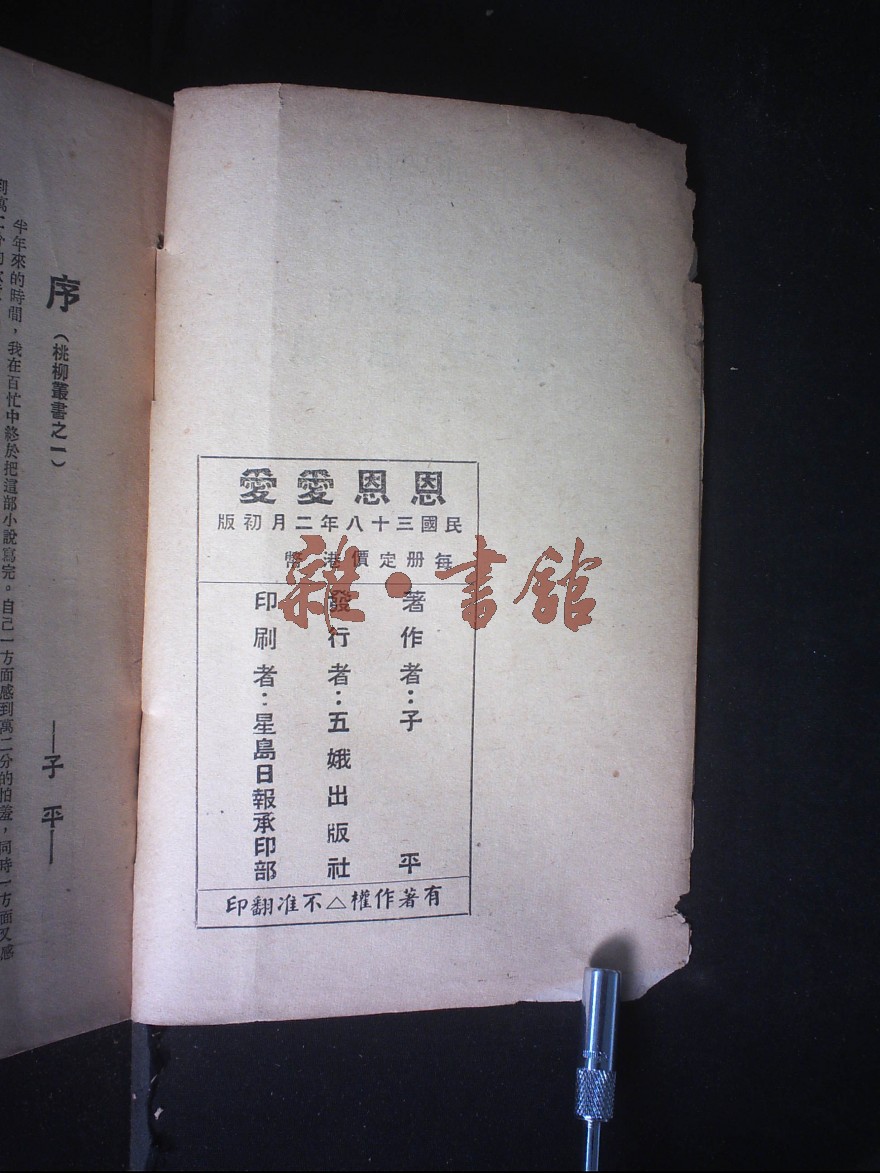 恩恩愛愛
民國三十八年二月初版
每册定價港幣
著作者：子平
發行者：五娥出版社
印刷者：星島日報承印部
有著作權△不准翻印
雜·書館
序
（桃柳叢書之一）
——子平——
半年來的時間，我在百忙中終於把這部小說寫完。自己一方面感到萬二分的怕羞，同時一方面又感
到萬二分的